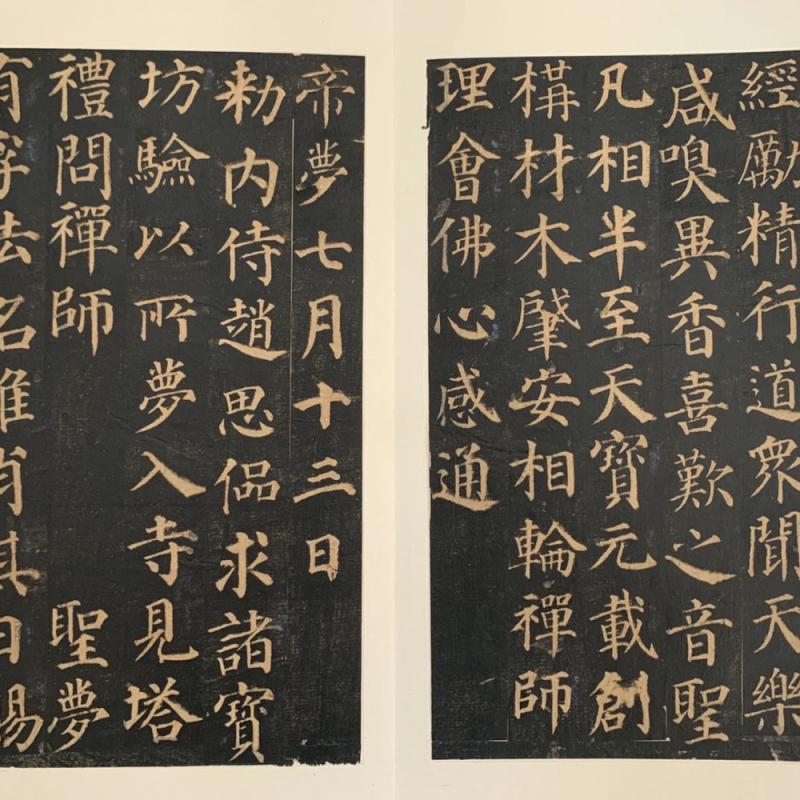 經勵精行道衆聞天樂
咸嗅異香喜歎之音聖
凡相半至天寶元載創
構材木肇安相輪禪師
理會佛心感通
帝夢七月十三日
勑内侍趙思偘求諸寶
坊驗以所夢入寺見塔
禮問禪師 聖夢
有孚法名惟肖其日賜